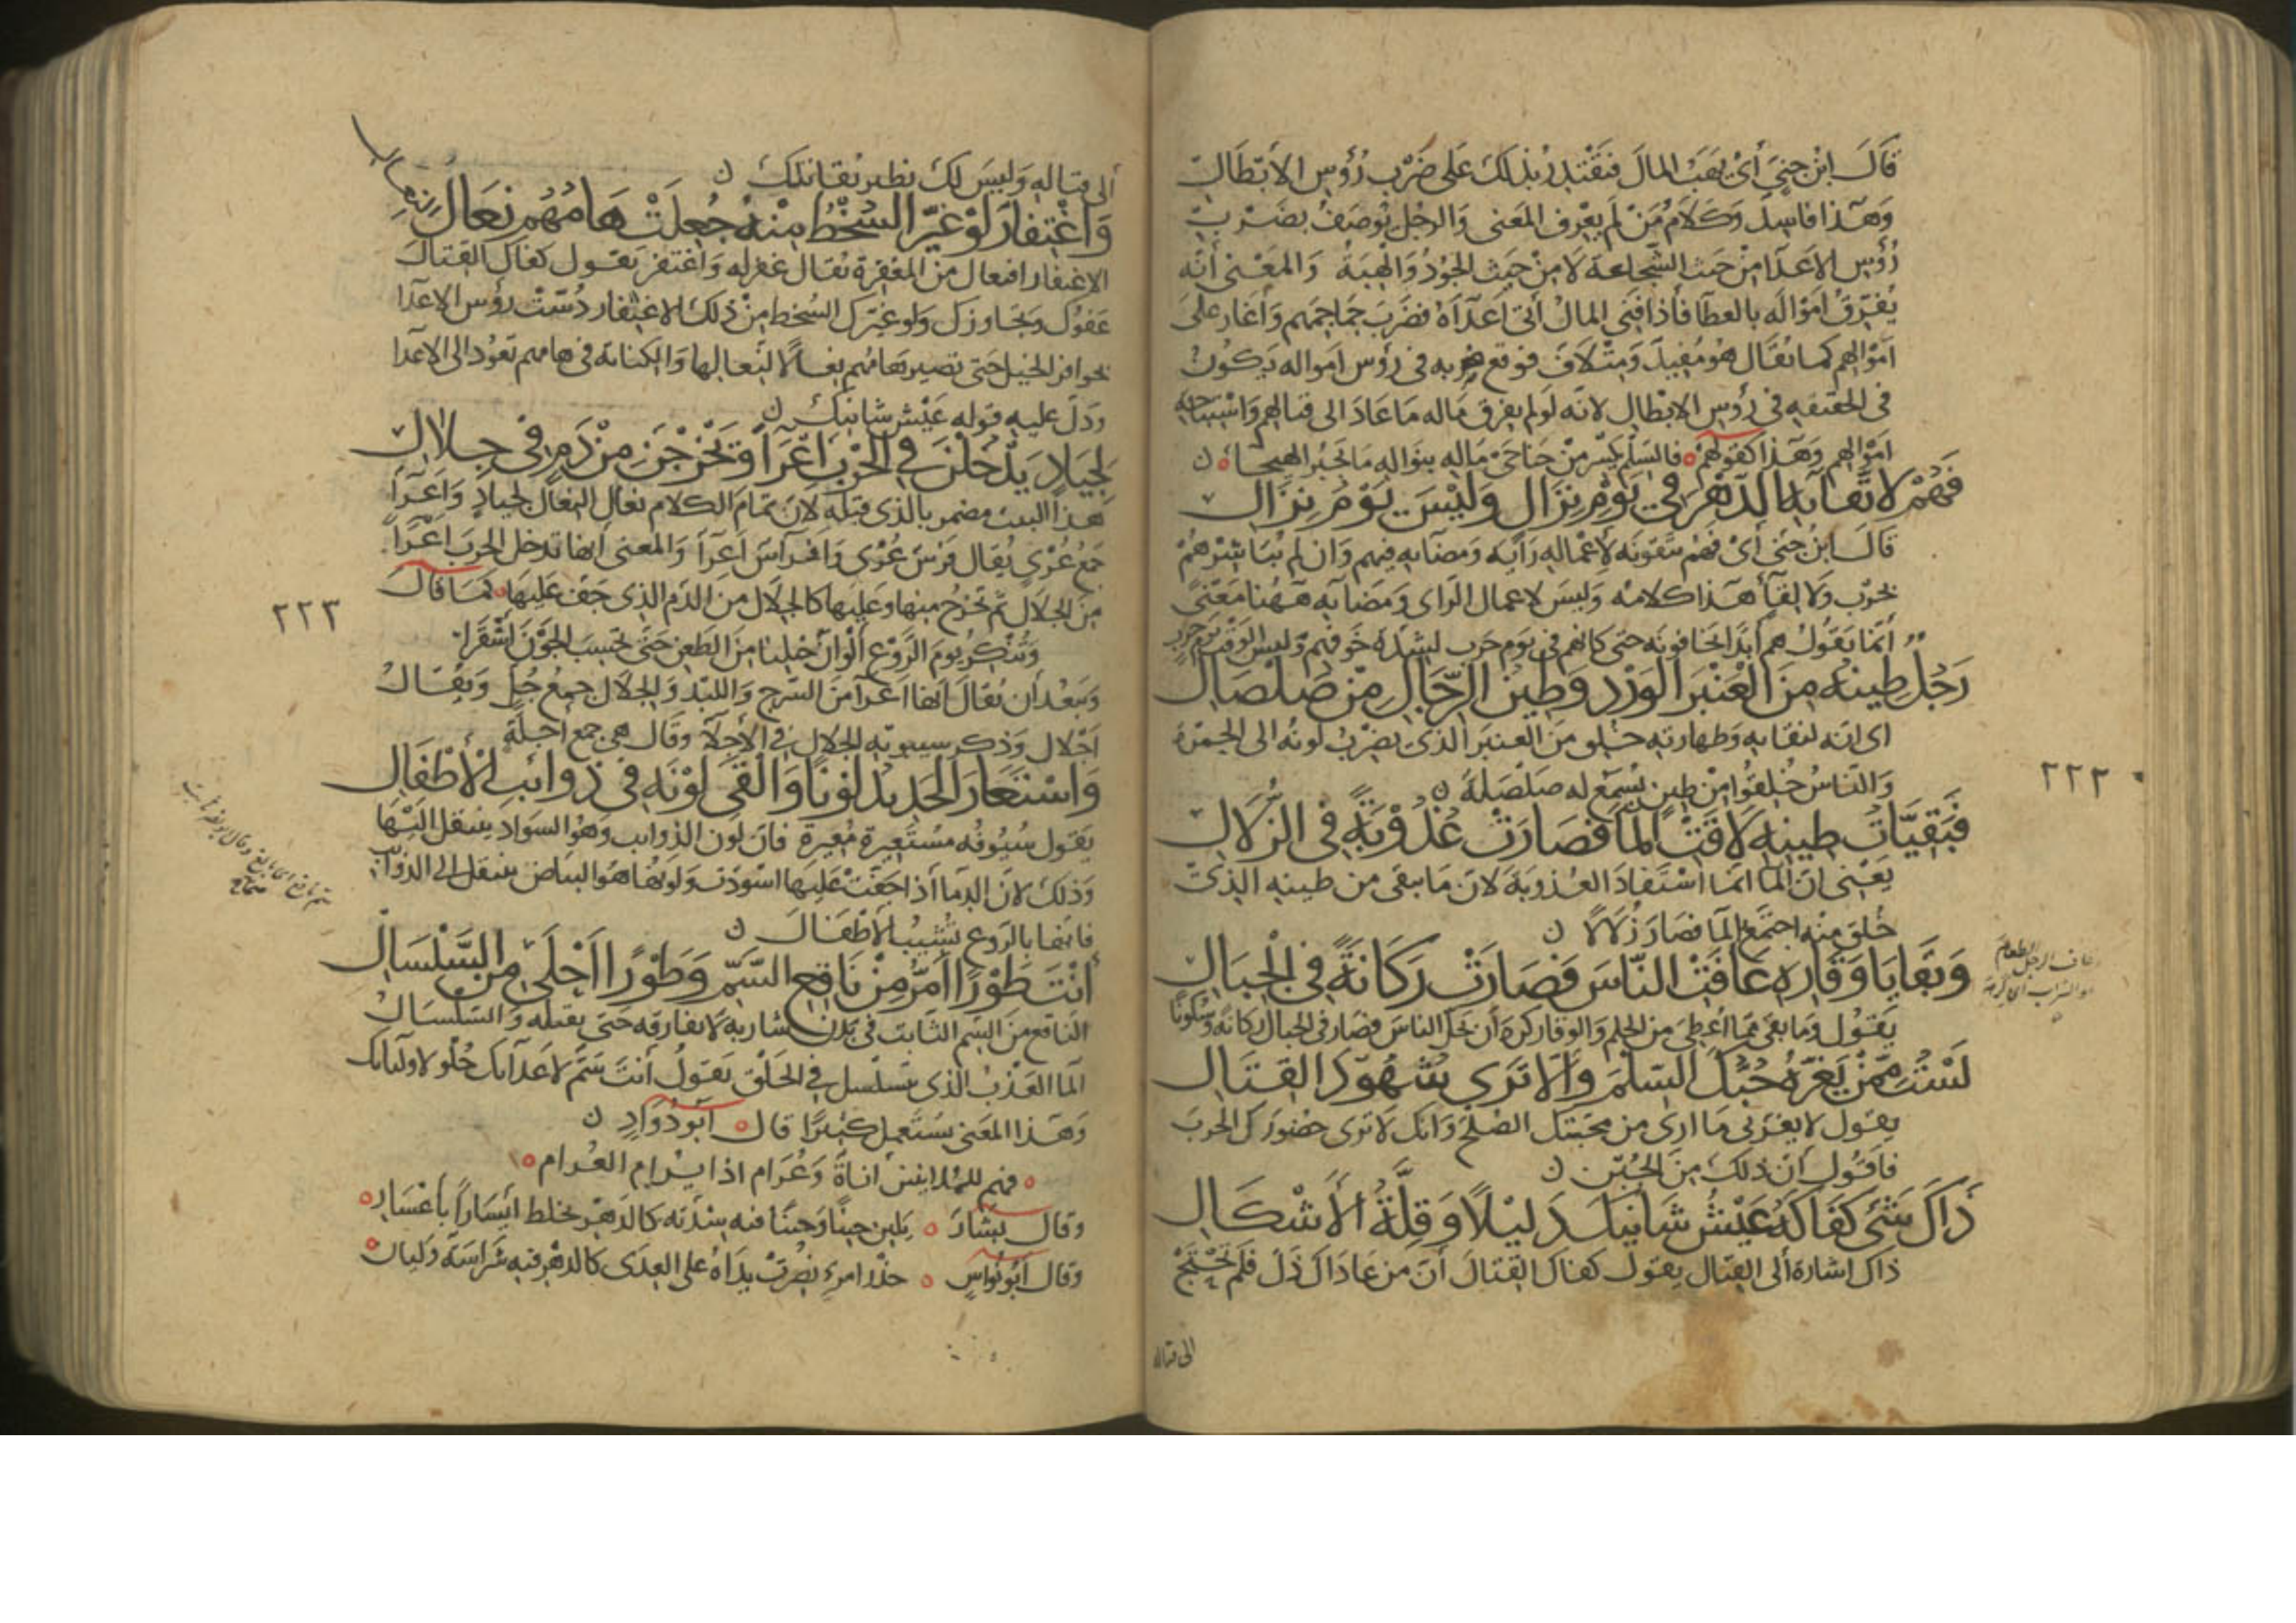 قَالَ ابْنُ جِنِّيَ أَيْ يَهَبُ المالَ فيَقْتَدِرُ بذلكَ عَلى ضَرْبِ رُؤُسِ الأَبْطَالِ
وَهَذا فاسِدٌ وَكَلَامُ مَنْ لَم يَعْرِفِ المَعنى وَالرجُل يُوصَفُ بضَرْبِ
رُؤُسِ الاَعدَا مِنْ حَيث الشَّجاعة لَا مِنْ حَيث الجُودُ وَالْهِبَةُ وَالمَعْنى أنَّه
يُفَرّقُ اَمْوَالَه بالعطَا فَأذا فَنِي المالُ أتَى اَعدَآهُ فضَرَبَ جَمَاجِمَهم وَأَغَارَ عَلَى
اَمْوَالِهم كما يُقَال هُو مُفِيدٌ وَمِتْلَافٌ فوقع ضربه في رؤس امواله يَكُونُ
في الحقيقهِ في رُؤسِ الابْطال لانّه لو لم يفرق مَاله مَا عَادَ الى قتالهم وَاسْتباحة
اَمْوَالهم وَهَذا كقولهمْ فالسّلْم يَكْسِر مِنْ جَناحَيْ مَاله بنَوالِهِ مَا تَجْبُر الهيجا
فَهُمْ لِاتِّقَآيِهِ الدَّهْرَ فِي يَوْمِ نِزَالٍ وَلَيْسَ يَوْمَ نِزَالِ
قَالَ ابنُ جِنّي أَىْ فَهُمْ يتّقونَه لِإعْمَالِه رَأيَه وَمَضآيِه فيهم وَان لم يُبَاشِرْهُمْ
بحَرْب وَلَا لِقَآأ هَذا كلامه وَليسَ لاعمال الرّاي وَمَضآيه هَهُنا مَعْنىً
أنّما يَقُولُ هم أبَدًا يخافونَه حتى كانهم في يَوم حَرب لشدّة خَوفهم وليس الوقت يَوم حَرب
رَجُلٌ طِينُهُ مِنَ الْعَنْبَرِ الْوَرْدِ وَطِينُ الرِّجَالِ مِنْ صَلْصَالِ
اى انّه لنقايهِ وَطهارتهِ خُلِق مِنَ العَنبَر الذى يَضْرِبُ لونُه الى الحُمرَة
وَالنّاسُ خُلِقُوا مِنْ طِين يُسْمَعُ له صَلْصَلَةٌ ن
فَبَقِيَّاتُ طِينِهِ لَاقَتِ الْمَآ فَصَارَتْ عُذُوْبَةً فِي الزُّلَالِ
يَعْنى انّ المآ انّما اسْتَفادَ العُذوبَة لانّ مَا بقى من طينهِ الذىْ
خُلِقَ مِنْه اجتمَعَ المآ فصَار زُلَالًا ن
وَبَقَايَا وَقَارِهِ عَافَتِ النّاسَ فَصَارَتْ رَكَانَةً فِي الْجِبَالِ
يَقولُ وَما بقى مّما أُعطِى مِن الحِلم وَالوقار كرهَ أن يَحُلّ الناسَ فصَار في الجبال رَكانةً وَسُكونًا
لَسْتُ مِمَّنْ يَغُرّهُ حُبُّكَ السّلْمَ وَأَلَّا تَرَى شُهُوْدَ الْقِتَالِ
يقول لا يغُرّنى مَا ارى من محبّتك الصُلح وَانّك لَا تَرَى حضورَكَ الحَربَ
فاَقُول أنّ ذلك مِنَ الجُبْن ن
ذَاكَ شَيْءٌ كَفَاكَهُ عَيْشُ شَانِيكَ ذَلِيْلًا وَقِلَّةُ الأَشْكَالِ
ذاكَ اشارة ألى القتال يقول كفاك القتالَ أنّ من عَادَاكَ ذَلّ فَلَم تَحْتَجْ
الى قتاله
٢٢٢
عاف الرجل الطعام
والشراب اى كرهه
ألى قِتالهِ وَليسَ لكَ نظير يُقاتلكَ ن
وَاغْتِفَارٌ لَوْ غَيَّرَ السُّخْطُ مِنْهُ جُعِلَتْ هَامُهُمْ نِعَالَ النِّعَالِ
الاغتفار افتعال من المغفِرَة يُقال غفر له وَاغتفر يقول كفاكَ القتالَ
عَفوُكَ وَتجَاوزكَ وَلو غيّركَ السُخط مِنْ ذلك الاغتفار دُسّتْ رؤس الاعدَا
بحَوافر الخيل حَتى تصير هَامُهم نعالًا لنِعالها وَالكناية في هامهم تعُود الى الاعدا
وَدلّ عليه قوله عَيْش شانيكَ ن
لِجِيَادٍ يَدْخُلْنَ فِي الْحَرْبِ أَعْرَآً وَيَخْرُجْنَ مِنْ دَمٍ فِي جِلَالِ
هَذا البيت مضمر بالذى قبله لانّ تمَام الكلام نِعال النِعَال لجيادٍ وَاَعرَآ
جَمعُ عُرْىٍ يُقال فَرَس عُرْى وَافراسٌ اَعرَآ وَالمعنى اَنها تدخل الحَربَ اعْرَآ
مِنَ الجلَال ثم تخرُج منها وَعليها كالجلَال مِنَ الدّم الذى جَفّ عَليهَا كمَا قالَ
وَتُنْكِرُ يومَ الرَّوْع أَلْوَانَ خَيْلِنا مِنَ الطّعن حَتَّى تَحْسِبَ الجَوْنَ اَشْقَرَا
وَيبعُد أن يُقالَ اَنّها اعرَآ مِنَ السّرج وَاللِبْد وَالجلَال جمعُ جُلّ وَيُقَالُ
اَجْلال وَذكر سِيبويْهِ الجلَال في الاجلاّ وَقال هى جمع اَجلّة
وَاسْتَعَارَ الْحَدِيدُ لَوْنًا وَأَلْقَى لَوْنَهُ فِي ذَوَائِبِ الْأَطْفَالِ
يقول سُيوفُه مُسْتعِيرة مُعيرة فانّ لون الذوايب وَهُو السوَاد ينتقل اليْهَا
وَذلك لانّ الدمآ أذا جَفّتْ عَليهَا اسْوَدّت وَلونُها هُو البيَاض ينتقل الى الذوَايب
فانها بالرَوع تُشيبُ الأطفَالَ ن
أَنْتَ طَوْرًا أَمَرُّ مِنْ نَاقِعِ السَّمِّ وَطَوْرًا أَحْلَى مِنَ السَّلْسَالِ
النَاقع مِنَ السّم الثابت في بَدن شاربه لا يفارقه حَتى يقتله وَالسّلسَالُ
المآ العَذبُ الذى يتسَلسل في الحَلق يَقولُ أنتَ سَمّ لاعدَآيكَ حُلو لاوليايكَ
وَهَذا المَعنى يُستَعمل كثيرًا قالَ أبو دُوَادٍ ن
فهم للمُلاينين اناةٌ وَعُرَام اذا يُرام العُرام
وقال بَشّارٌ يَلين حِينًا وَحِينًا فيه شِدّته كالدَهْر يخلط أيْسَارًا بأعسَارِ
وَقالَ أَبُو نُواسٍ حَذَرَ امرئٍ نُصِرَتْ يَدَاهُ على العِدَى كالدهرِ فيه شَرَاسَة وَلَيان
٢٢٣
صحاح